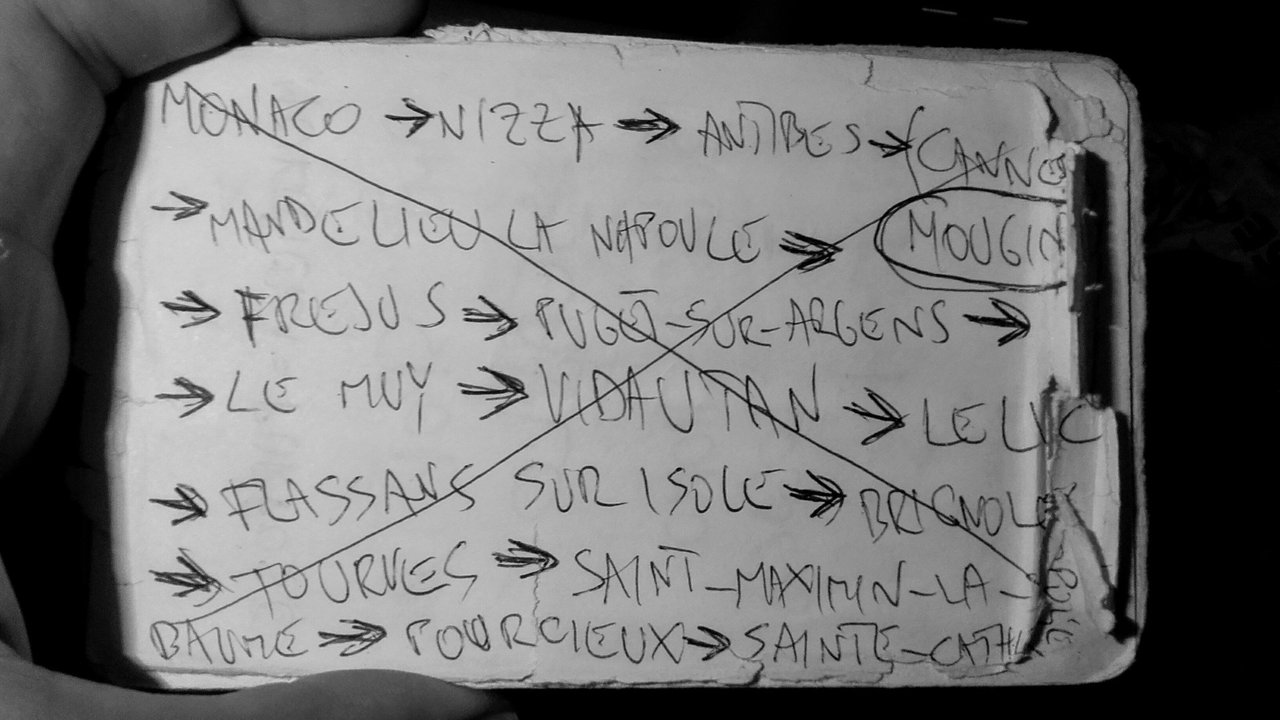 MONACO → NIZZA → ANTIBES → (CANNE
→ MANDELIEU LA NAPOULE → MOUGIN
→ FREJUS → PUGET-SUR-ARGENS →
→ LE MUY → VIDAUTAN → LE LUC
→ FLASSANS SUR ISOLE → BRIGNOL
→ TOURVES → SAINT-MAXIMIN-LA-
BAUME → POURCIEUX → SAINTE-CATH